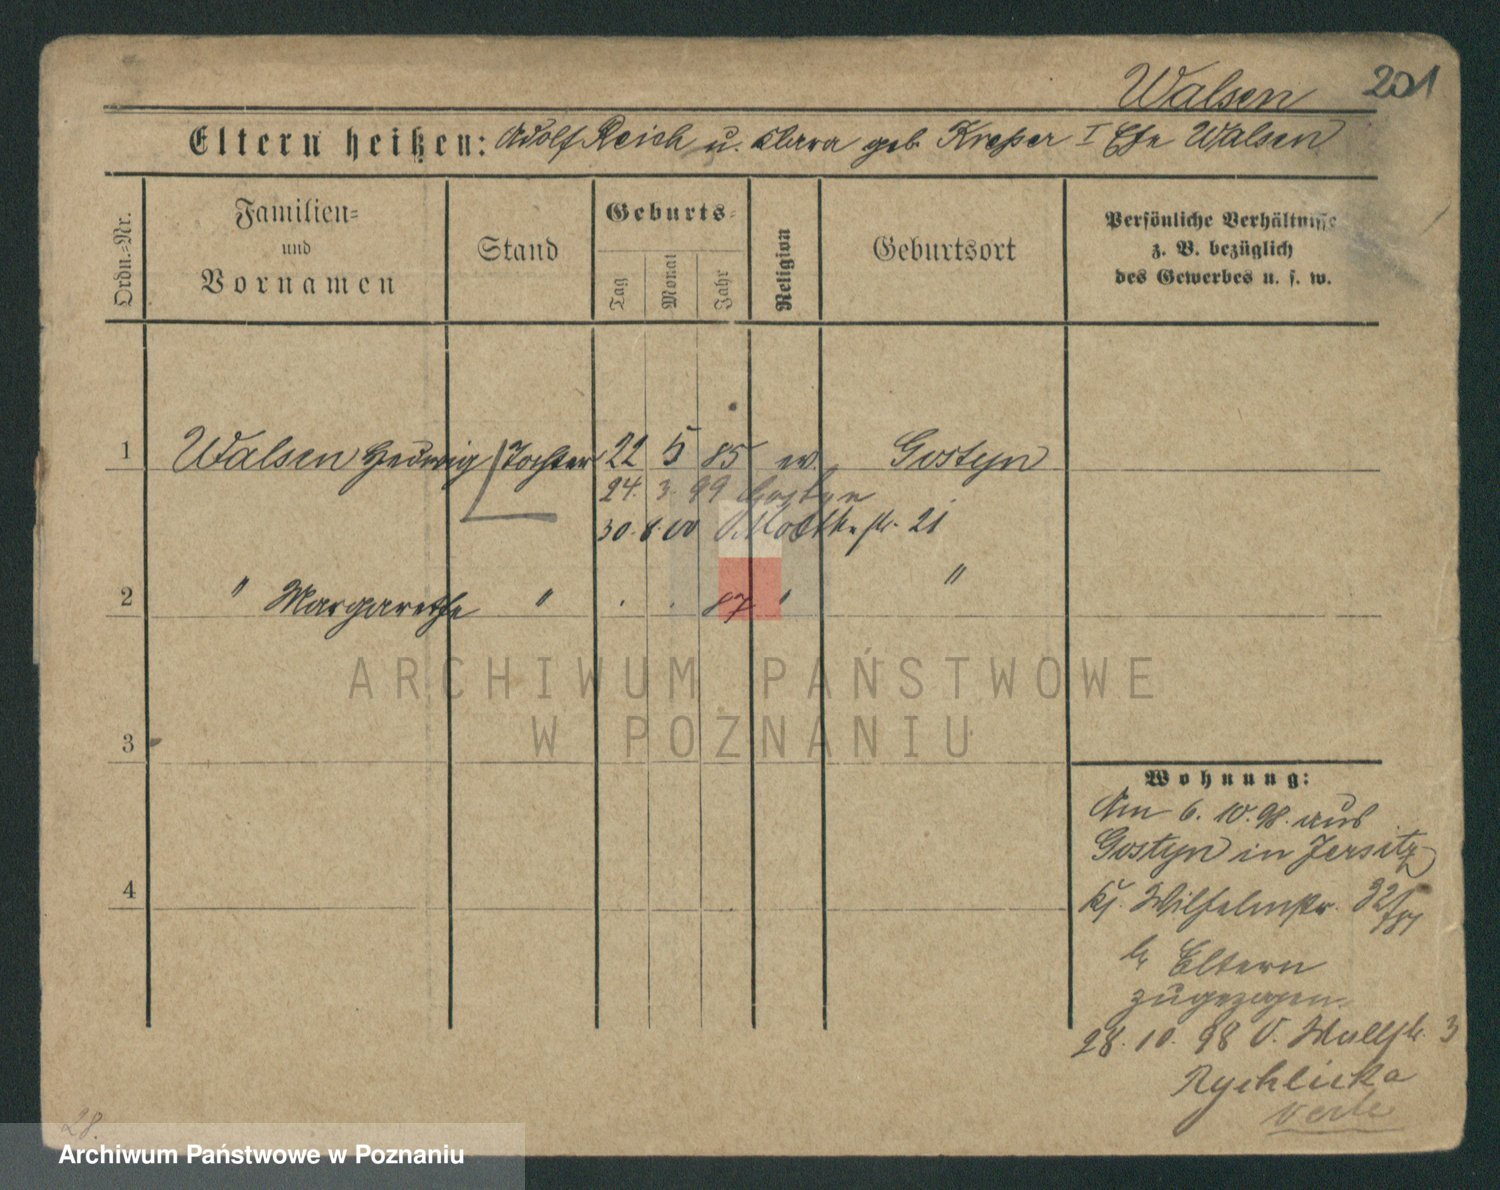 Walsen 201
Eltern heißen: Adolf Reich u. Clara geb. Kreßer I Ehe Walsen
Ordn.-Nr.
Familien- und Vornamen
Stand
Geburts-
Tag
Monat
Jahr
Religion
Geburtsort
Persönliche Verhältnisse
z. B. bezüglich
des Gewerbes u. s. w.
1 Walsen Hedwig Tochter 22 5 85 ev. Gostyn
24. 3. 99 Gostyn
30. 8. 00 21
2 " Margarethe " . . 87 " "
ARCHIWUM PAŃSTWOWE
W POZNANIU
3
4
Wohnung:
Am 6. 10. 98. aus
Gostyn in Jersitz
Wilhelmstr. 32/
Eltern
zugezogen.
28. 10. 98 V. Wallstr. 3
Rychlicka
verte
28.
Archiwum Państwowe w Poznaniu